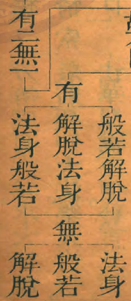 有二無一
有
般若解脫
解脫法身
法身般若
無
法身
般若
解脫